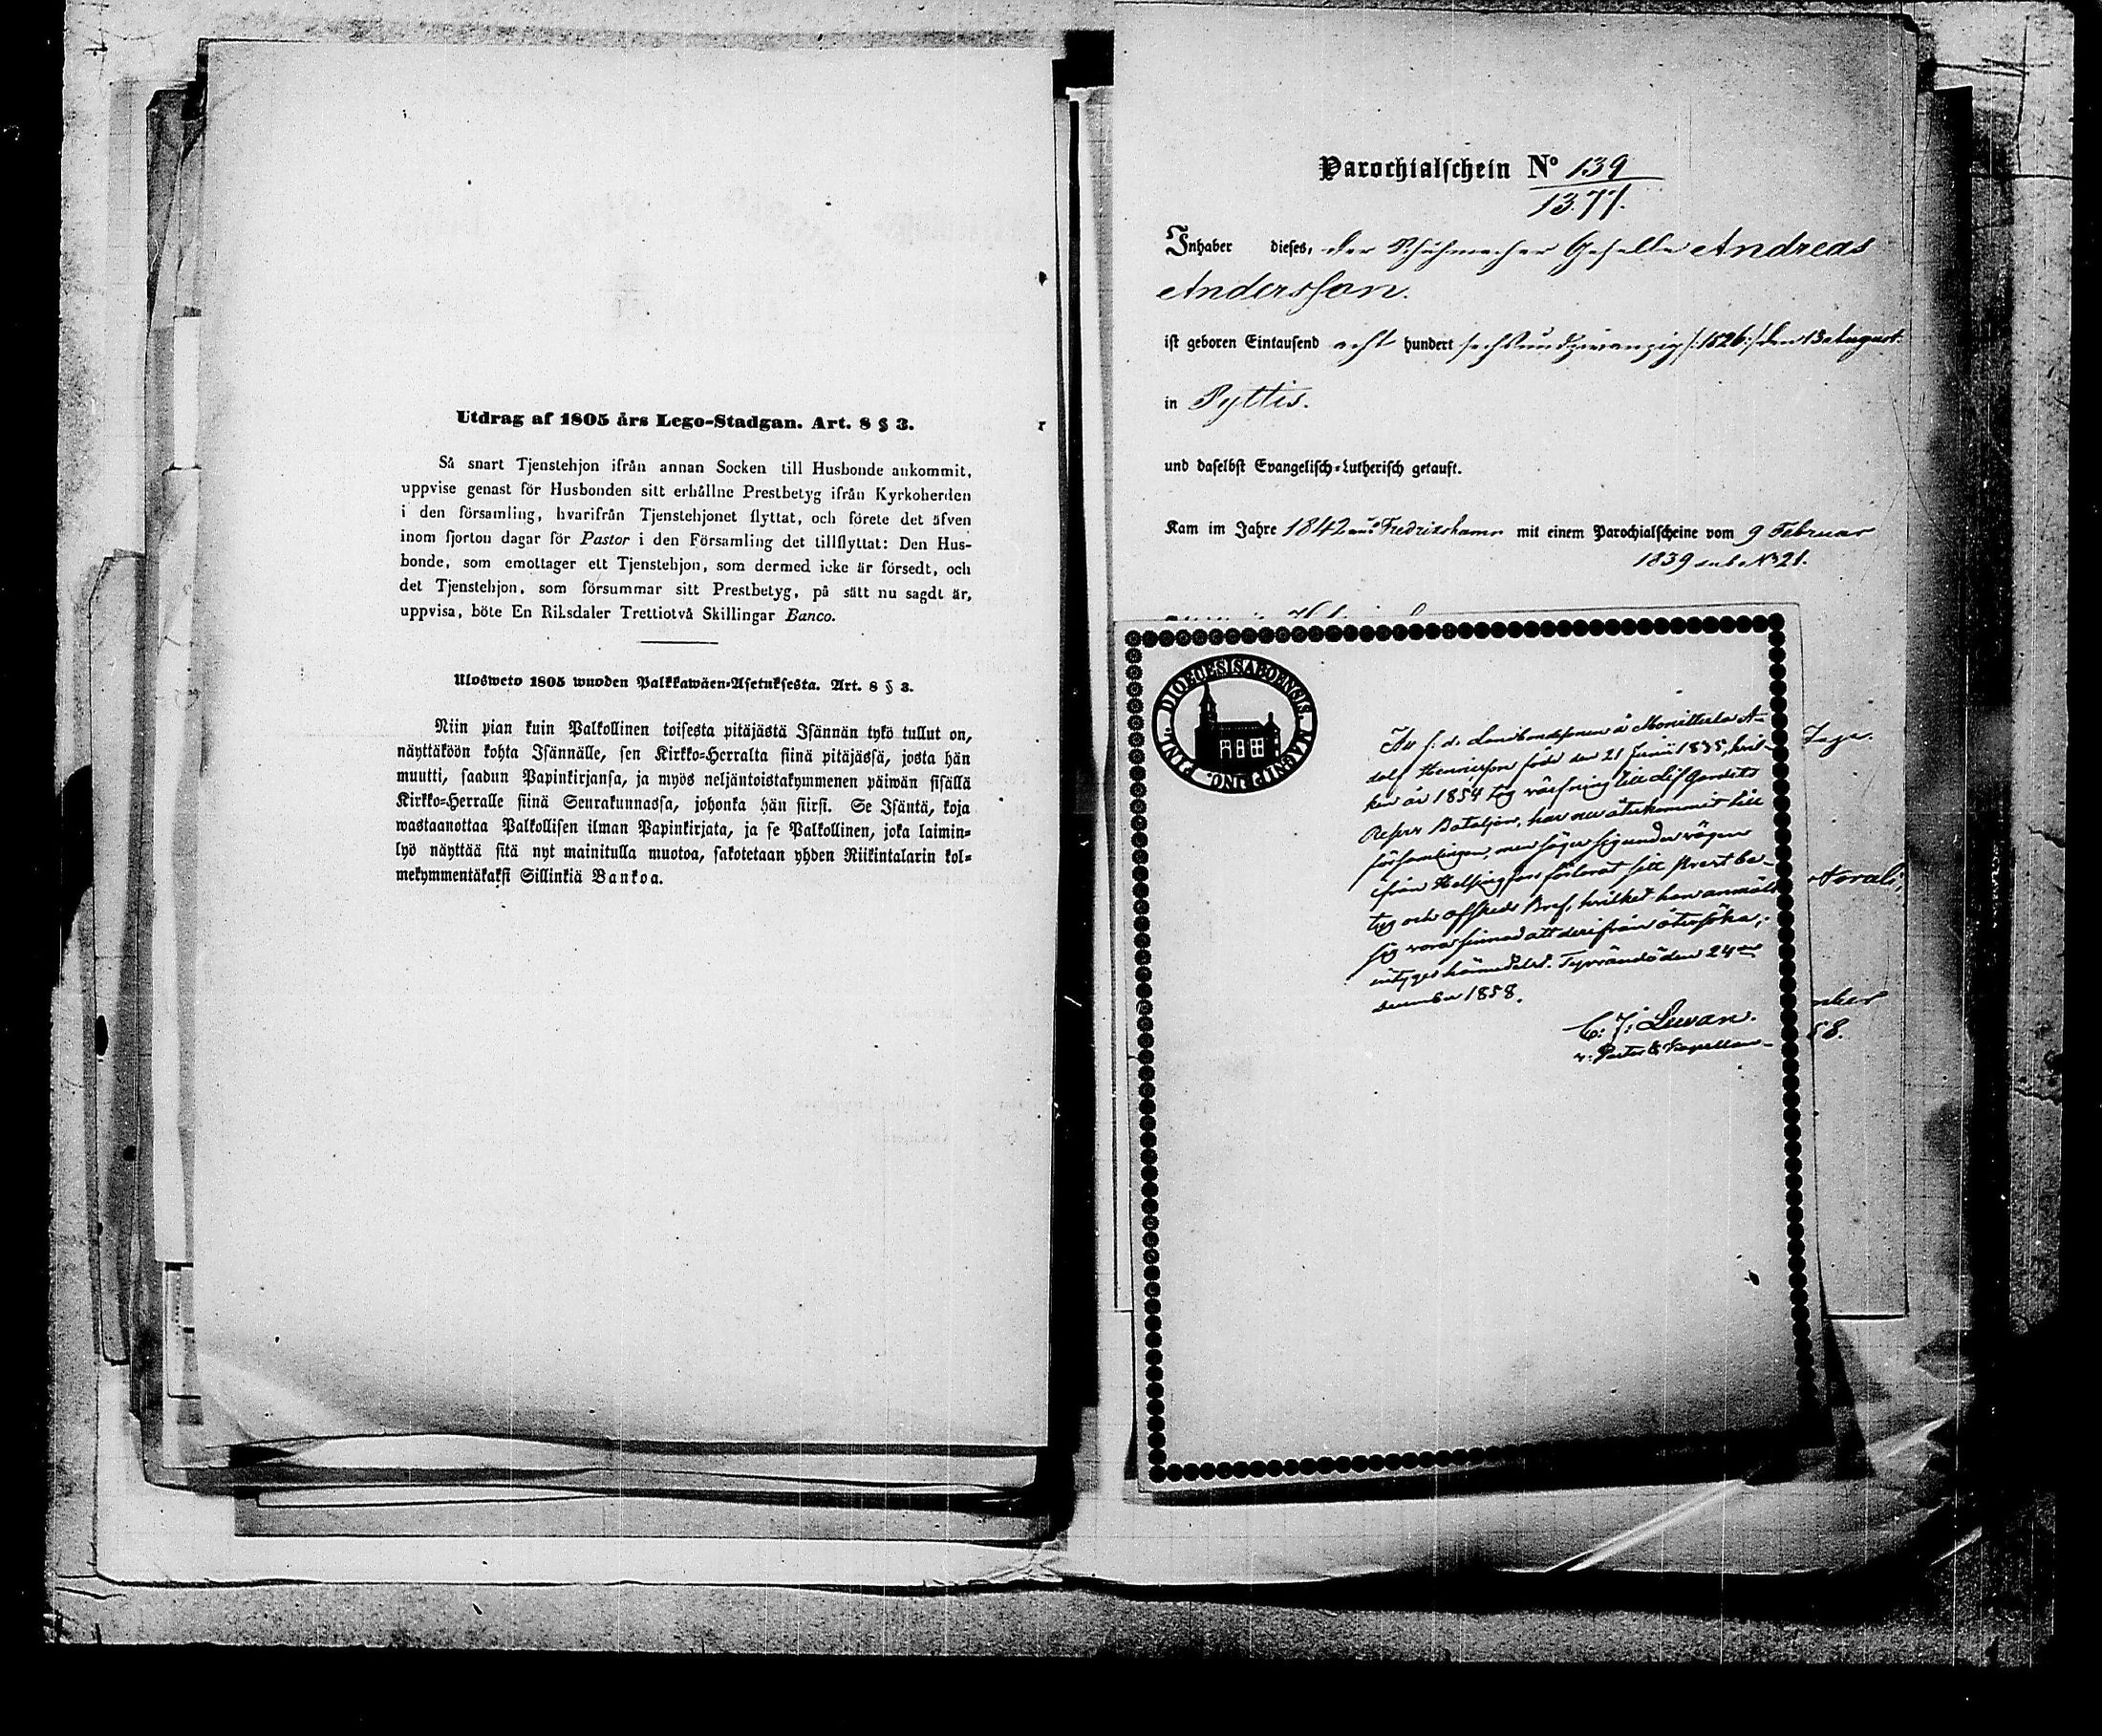 Utdrag af 1805 års Lego-Stadgan. Art. 8 § 3.
Så snart Tjenstehjon ifrån annan Socken till Husbonde ankommit,
uppvise genast för Husbonden sitt erhållne Prestbetyg ifrån Kyrkoherden
i den församling, hvarifrån Tjenstehjonet flyttat, och förete det äfven
inom fjorton dagar för Pastor i den Församling det tillflyttat: Den Hus-
bonde, som emottager ett Tjenstehjon, som dermed icke är försedt, och
det Tjenstehjon, som försummar sitt Prestbetyg, på sätt nu sagdt är,
uppvisa, böte En Riksdaler Trettiotvå Skillingar Banco.
Ulosweto 1805 wuoden Palkkawäen-Asetuksesta. Art. 8 § 3.
Niin pian kuin Palkollinen toisesta pitäjästä Isännän tykö tullut on,
näyttäköön kohta Isännälle, sen Kirkko-Herralta siinä pitäjässä, josta hän
muutti, saadun Papinkirjansa, ja myös neljäntoistakymmenen päiwän sisällä
Kirkko-Herralle siinä Seurakunnassa, johonka hän siirsi. Se Isäntä, koja
wastaanottaa Palkollisen ilman Papinkirjata, ja se Palkollinen, joka laimin-
lyö näyttää sitä nyt mainitulla muotoa, sakotetaan yhden Riikintalarin kol-
mekymmentäkaksi Sillinkiä Bankoa.
Parochialschein No 139
1377.
Inhaber dieses, der Schuhmacher Geselle Andreas
Andersson.
ist geboren Eintausend acht hundert sechsundzwanzig /:1826:/ den 13 August
in Pyttis.
und daselbst Evangelisch-Lutherisch getauft.
Kam im Jahre 1842 aus Fredrikshamn mit einem Parochialscheine vom 9 Februar
1839 sub No 21.
DIOECESIS ABOENSIS. MAGNI PRINC. FINL.
f. d. Landbondsonen å A-
dolf Henricsson född den 21 Junii 1835, hvil-
ken år 1854 tog värfning till Lif Gardets
Reserv Bataljon, har nu återkommit till
församlingen, men säger sig under vägen
ifrån Helsingfors förlorat sitt Prestbe-
tyg och afskeds Bref, hvilket han anmält
sig vara sinnad att derifrån återsöka;
intygas härmedelst. Tyrvändö den 24de
December 1858.
C. J. Lewan.
v. Pastor & Kapellan
58.